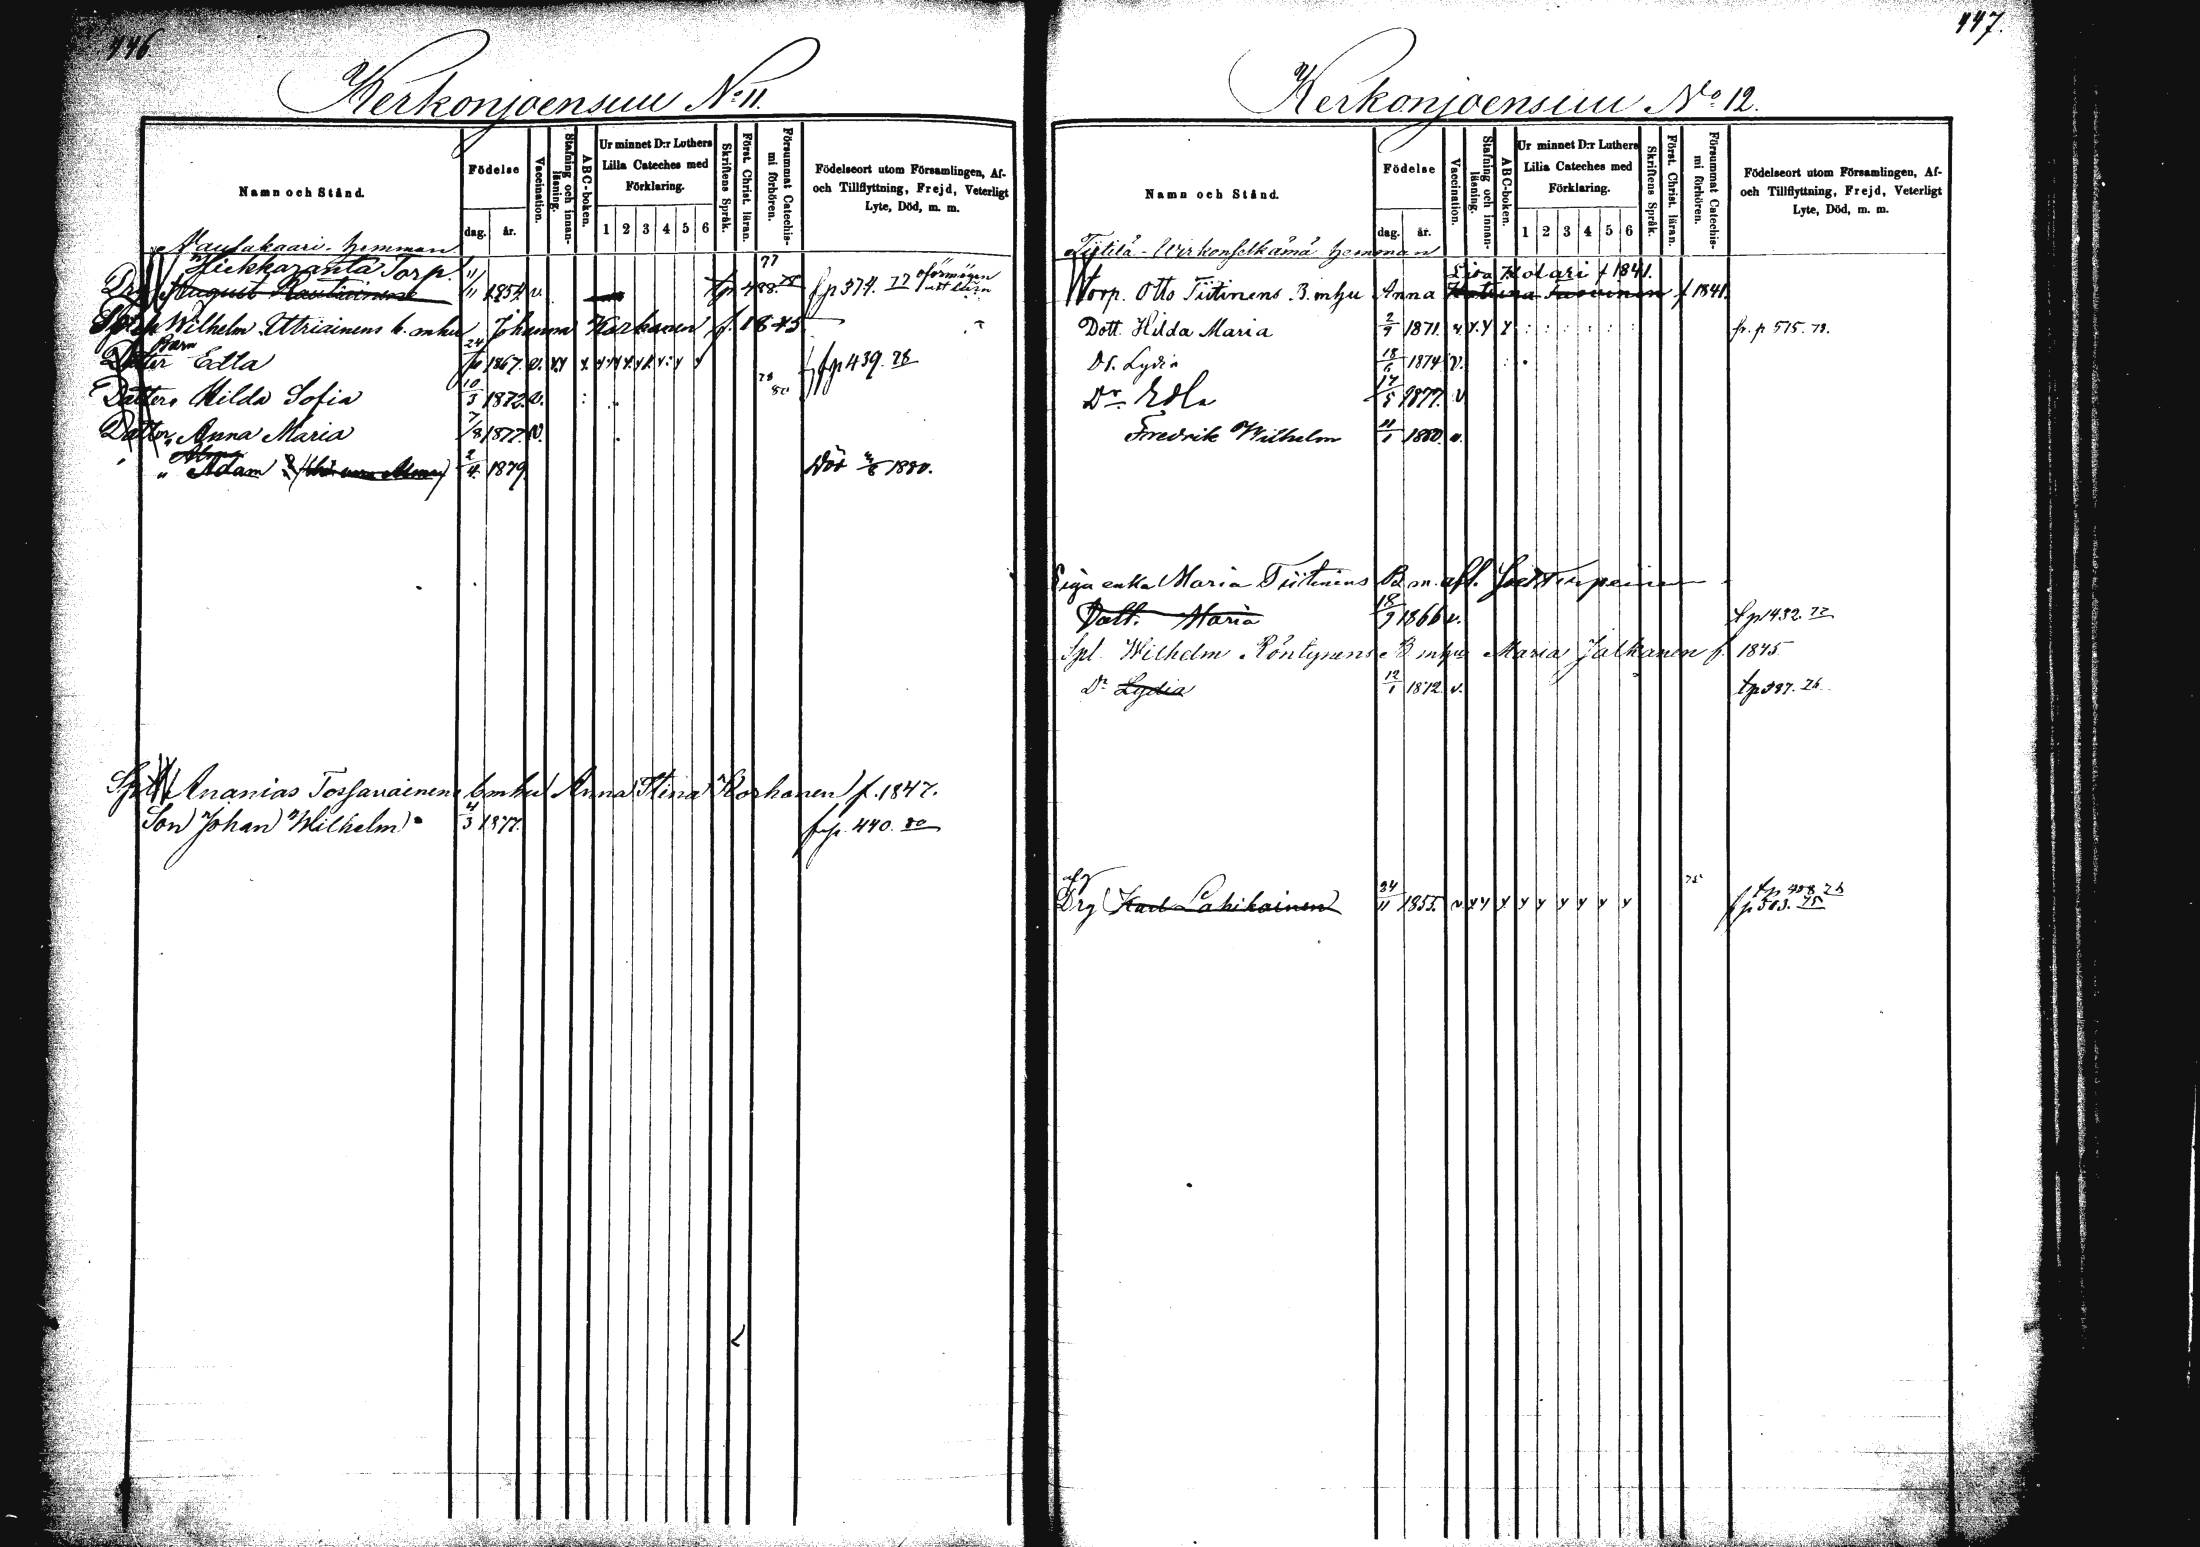 446
Kerkonjoensuu No 11.
Namn och Stånd.
Födelse
dag. år.
Vaccination.
Stafning och innanläsning.
ABC-boken.
Ur minnet D:r Luthers Lilla Cateches med Förklaring.
1 2 3 4 5 6
Skriftens Språk.
Först. Christ. läran.
Försummat Catechismi förhören.
Födelseort utom Församlingen, Af- och Tillflyttning, Frejd, Veterligt Lyte, Död, m. m.
hemman
Hiekkaranta Torp
77
August Rautiainen 11/11 1854. v. tp 488. 78 fp 374. 77 oförmögen
Wilhelm Uttriainens b. mhu Johanna Korhonen f. 1845
Barn
Dotter Edla 24/10 1867. v. fp 439. 78
Dotter Hilda Sofia 10/3 1872. v. 78 80
Dotter Anna Maria 7/8 1877. v.
Alma
" Adam 2/4 1879. Död 1880.
Ananias Tossavainens b mhu Anna Stina Korhonen f. 1847.
Son Johan Wilhelm 4/3 1877. frp. 440. 80
447.
Kerkonjoensuu No 12.
Namn och Stånd.
Födelse
dag. år.
Vaccination.
Stafning och innanläsning.
ABC-boken.
Ur minnet D:r Luthers Lilla Cateches med Förklaring.
1 2 3 4 5 6
Skriftens Språk.
Först. Christ. läran.
Försummat Catechismi förhören.
Födelseort utom Församlingen, Af- och Tillflyttning, Frejd, Veterligt Lyte, Död, m. m.
Tiitilä - Wirkonselkämä hemman
Lisa Holari f 1841.
Torp. Otto Tiitinens B. mhu Anna Katrina f 1841.
Dott. Hilda Maria 2/9 1871. v. y. y y fr. p 515. 78.
Dr. Lydia 18/6 1874 v.
Dr. Edla 17/5 1877. v
Fredrik Wilhelm 11/1 1880. v.
enka Maria Tiitinens B. m. afl.
Dott. Maria 18/9 1866 v. tp 432. 77
Spl. Wilhelm Röntynens B mhu Maria Jalkanen f. 1845
Dr Lydia 12/1 1872. v. tp 397. 76.
Drg Karl Lahikainen 24/11 1855. v y y y y y y y y y 75 tp 458 76
fp 503. 75